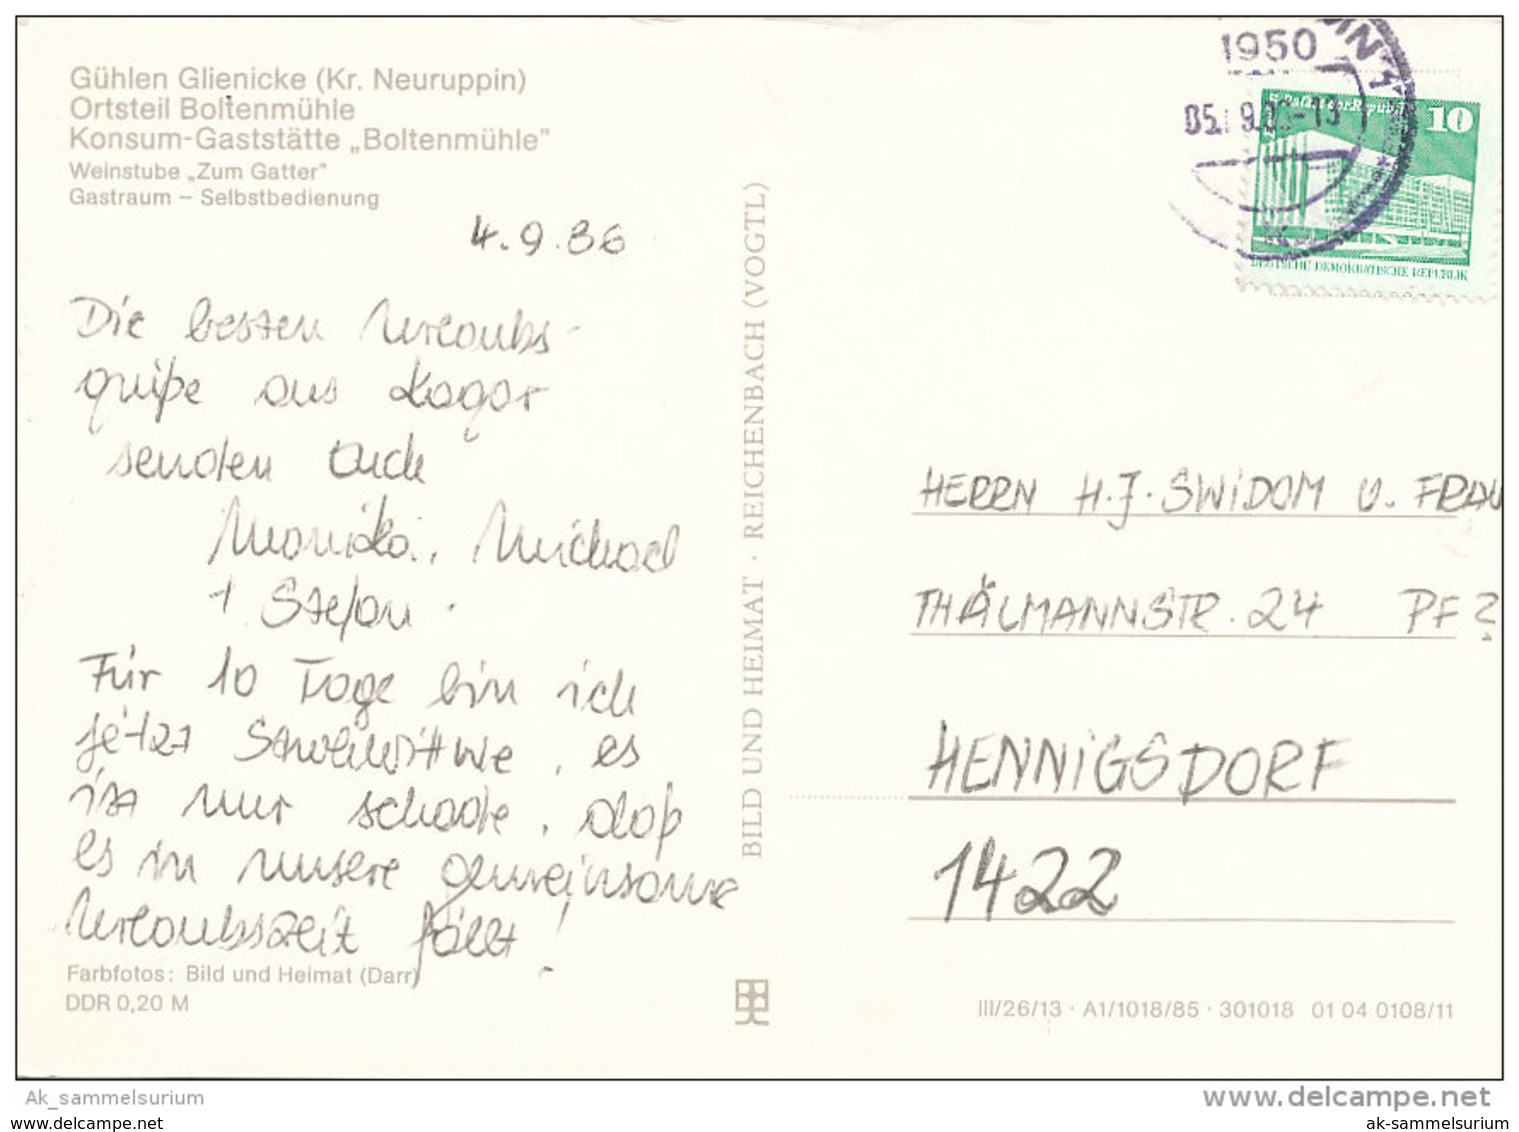 Gühlen Glienicke (Kr. Neuruppin)
Ortsteil Boltenmühle
Konsum-Gaststätte „Boltenmühle"
Weinstube „Zum Gatter"
Gastraum – Selbstbedienung
4.9.86
Die besten Urlaubs-
grüße aus Kagar
senden Euch
Monika, Michael
+ Stefan.
Für 10 Tage bin ich
jetzt Strohwitwe, es
ist nur schade, daß
es in unsere gemeinsame
Urlaubszeit fällt!
Farbfotos: Bild und Heimat (Darr)
DDR 0,20 M
BILD UND HEIMAT · REICHENBACH (VOGTL)
1950
05. 9.
10
DEUTSCHE DEMOKRATISCHE REPUBLIK
HERRN H.J. SWIDOM U. FRAU
THÄLMANNSTR. 24 PF ?
HENNIGSDORF
1422
III/26/13 · A1/1018/85 · 301018 01 04 0108/11
Ak_sammelsurium
www.delcampe.net
www.delcampe.net
ak-sammelsurium